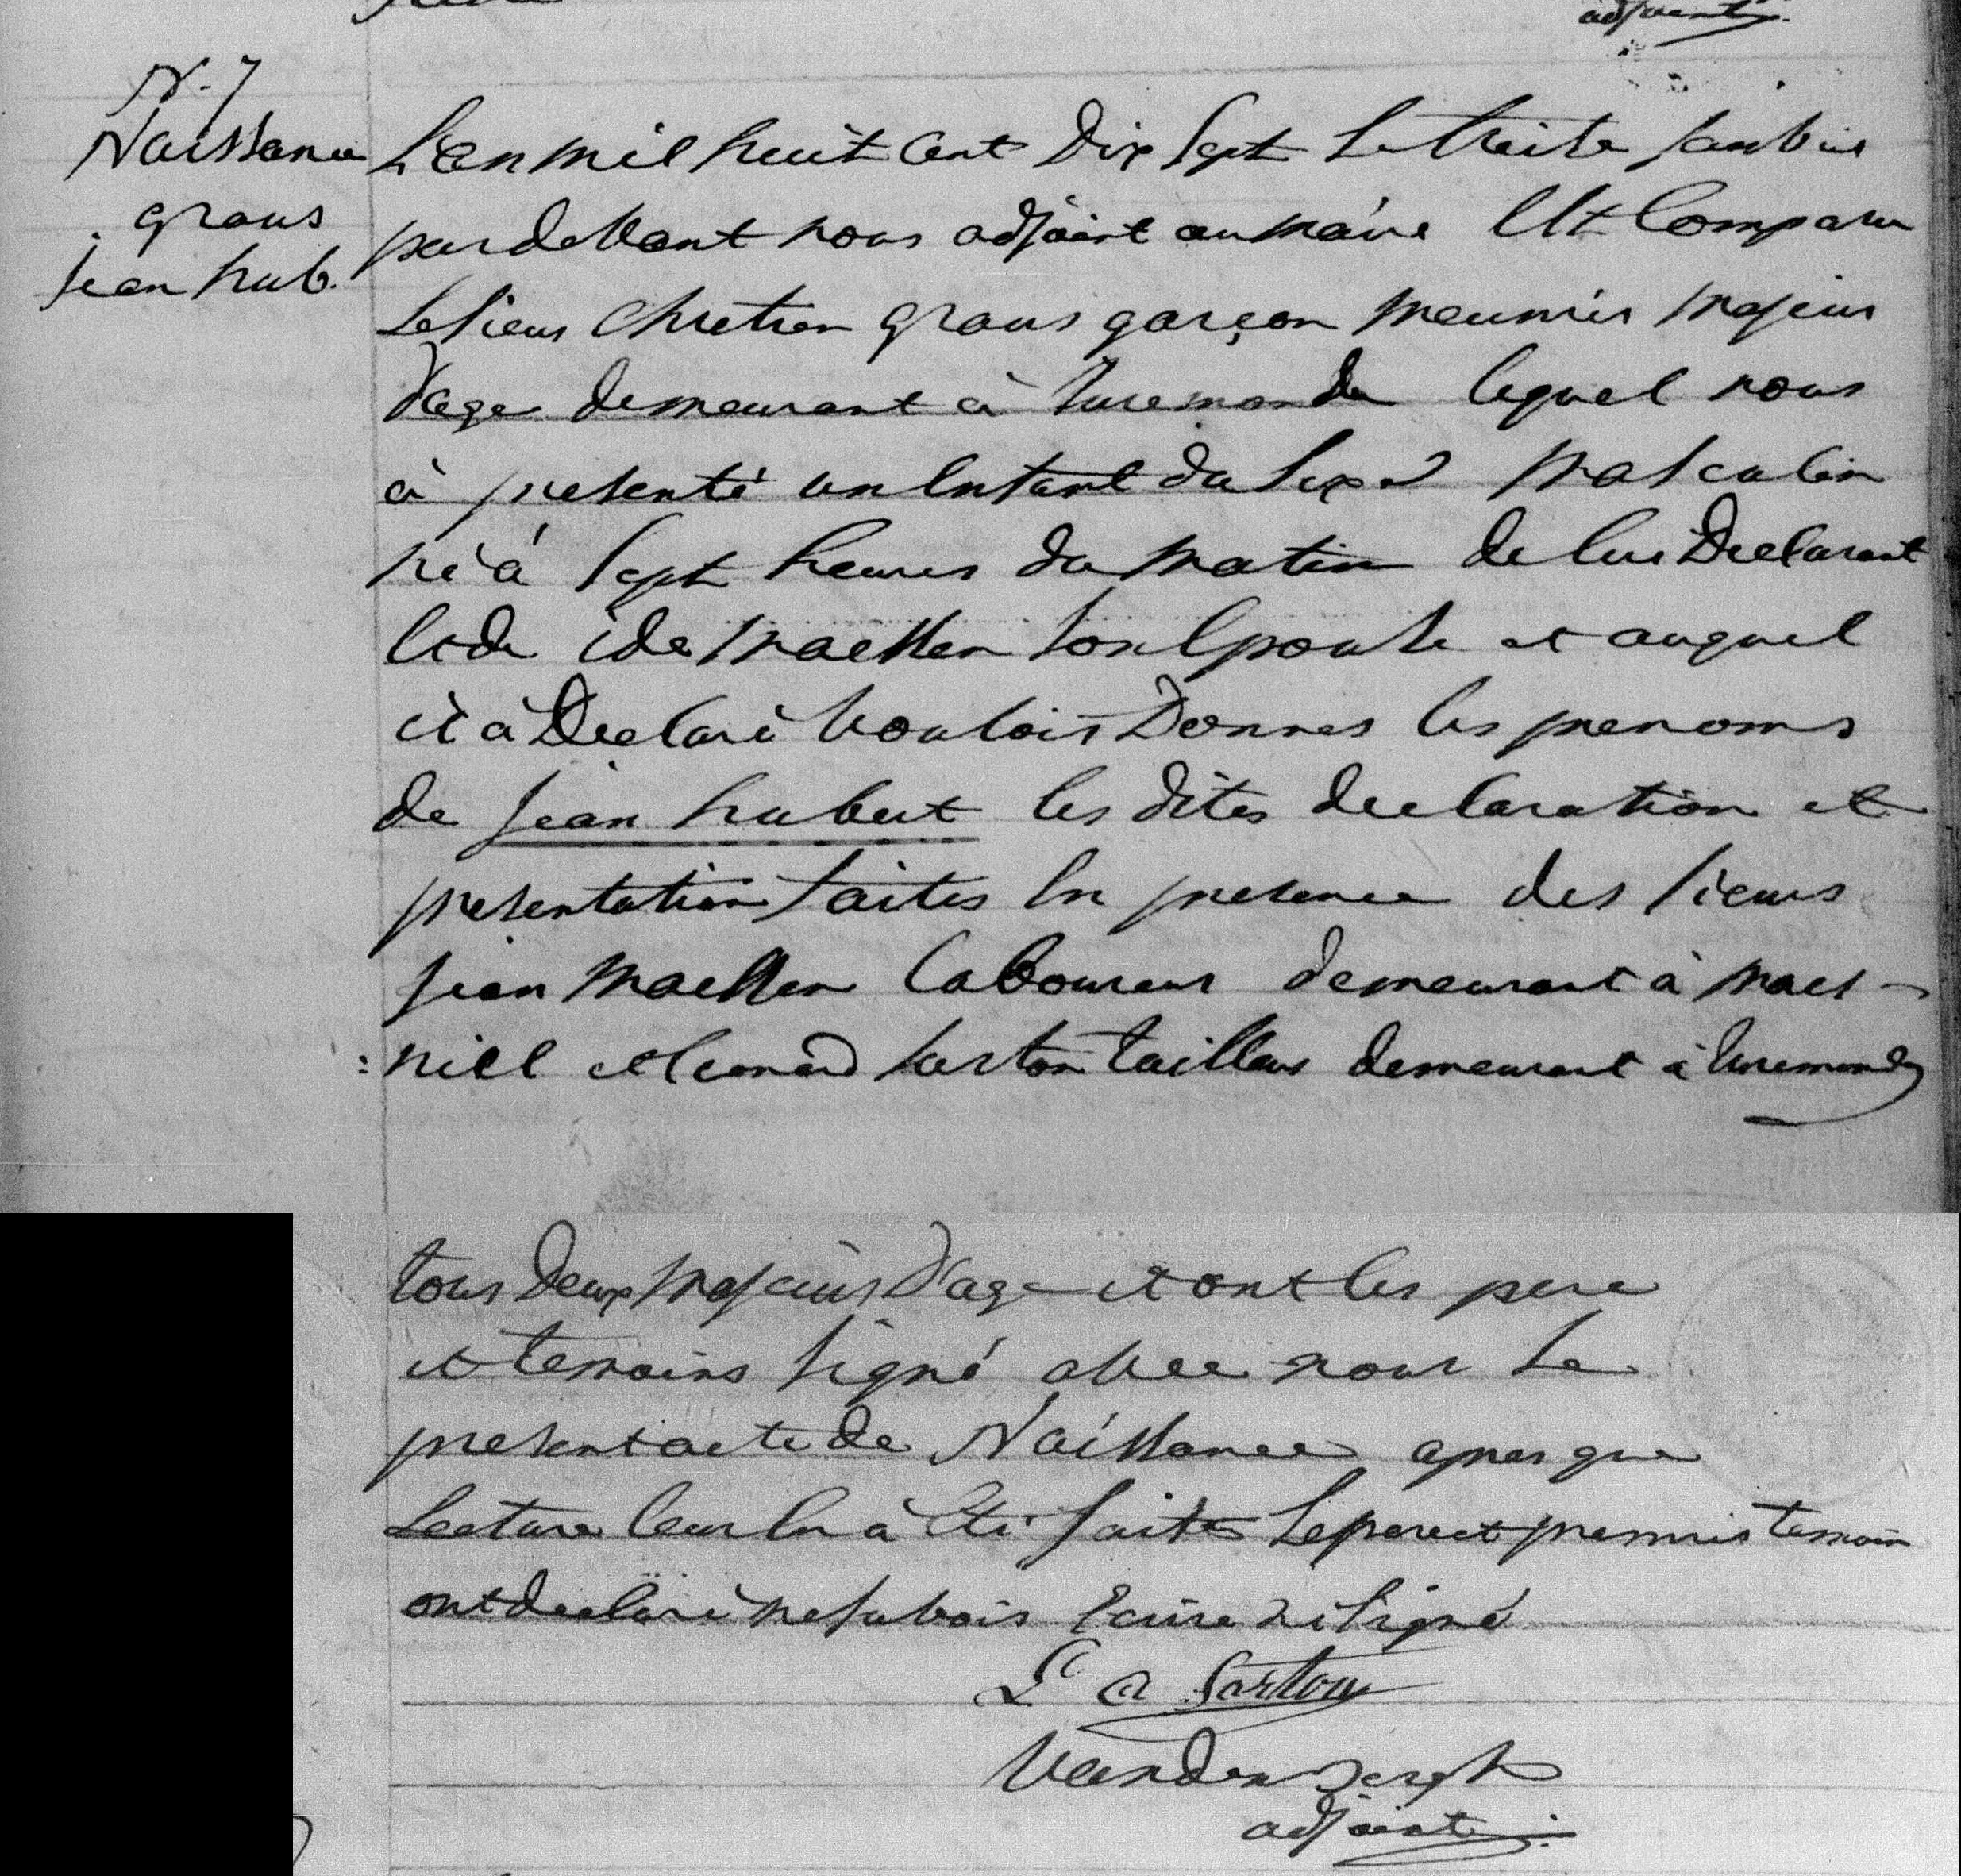 adjoint
N. 7
Naissance
graus
jean hub.
L'an mil huit cent dix sept le treize janvier
pardevant nous adjoint au maire Est Comparu
le sieur Chretien graus garçon meunier majeur
d'age demeurant à ruremonde lequel nous
à presenté un Enfant du sexe masculin
né à sept heures du matin de lui Declarant
et de ida maessen son Epouse et auquel
il à Declaré vouloir Donner les prenoms
de jean hubert les dites declaration et
presentation faites En presence des sieurs
jean maessen Laboureur demeurant à maes-
:niel et leonard sarton tailleur demeurant à ruremonde
tous deux majeurs d'age et ont les pere
et temoins signé avec nous Le
present acte de Naissance apres que
Lecture leur En à Eté faite Le pere et premier temoin
ont declaré ne savoir Ecrire ni signé
L C A Sarton
Vandenbergh
adjoint